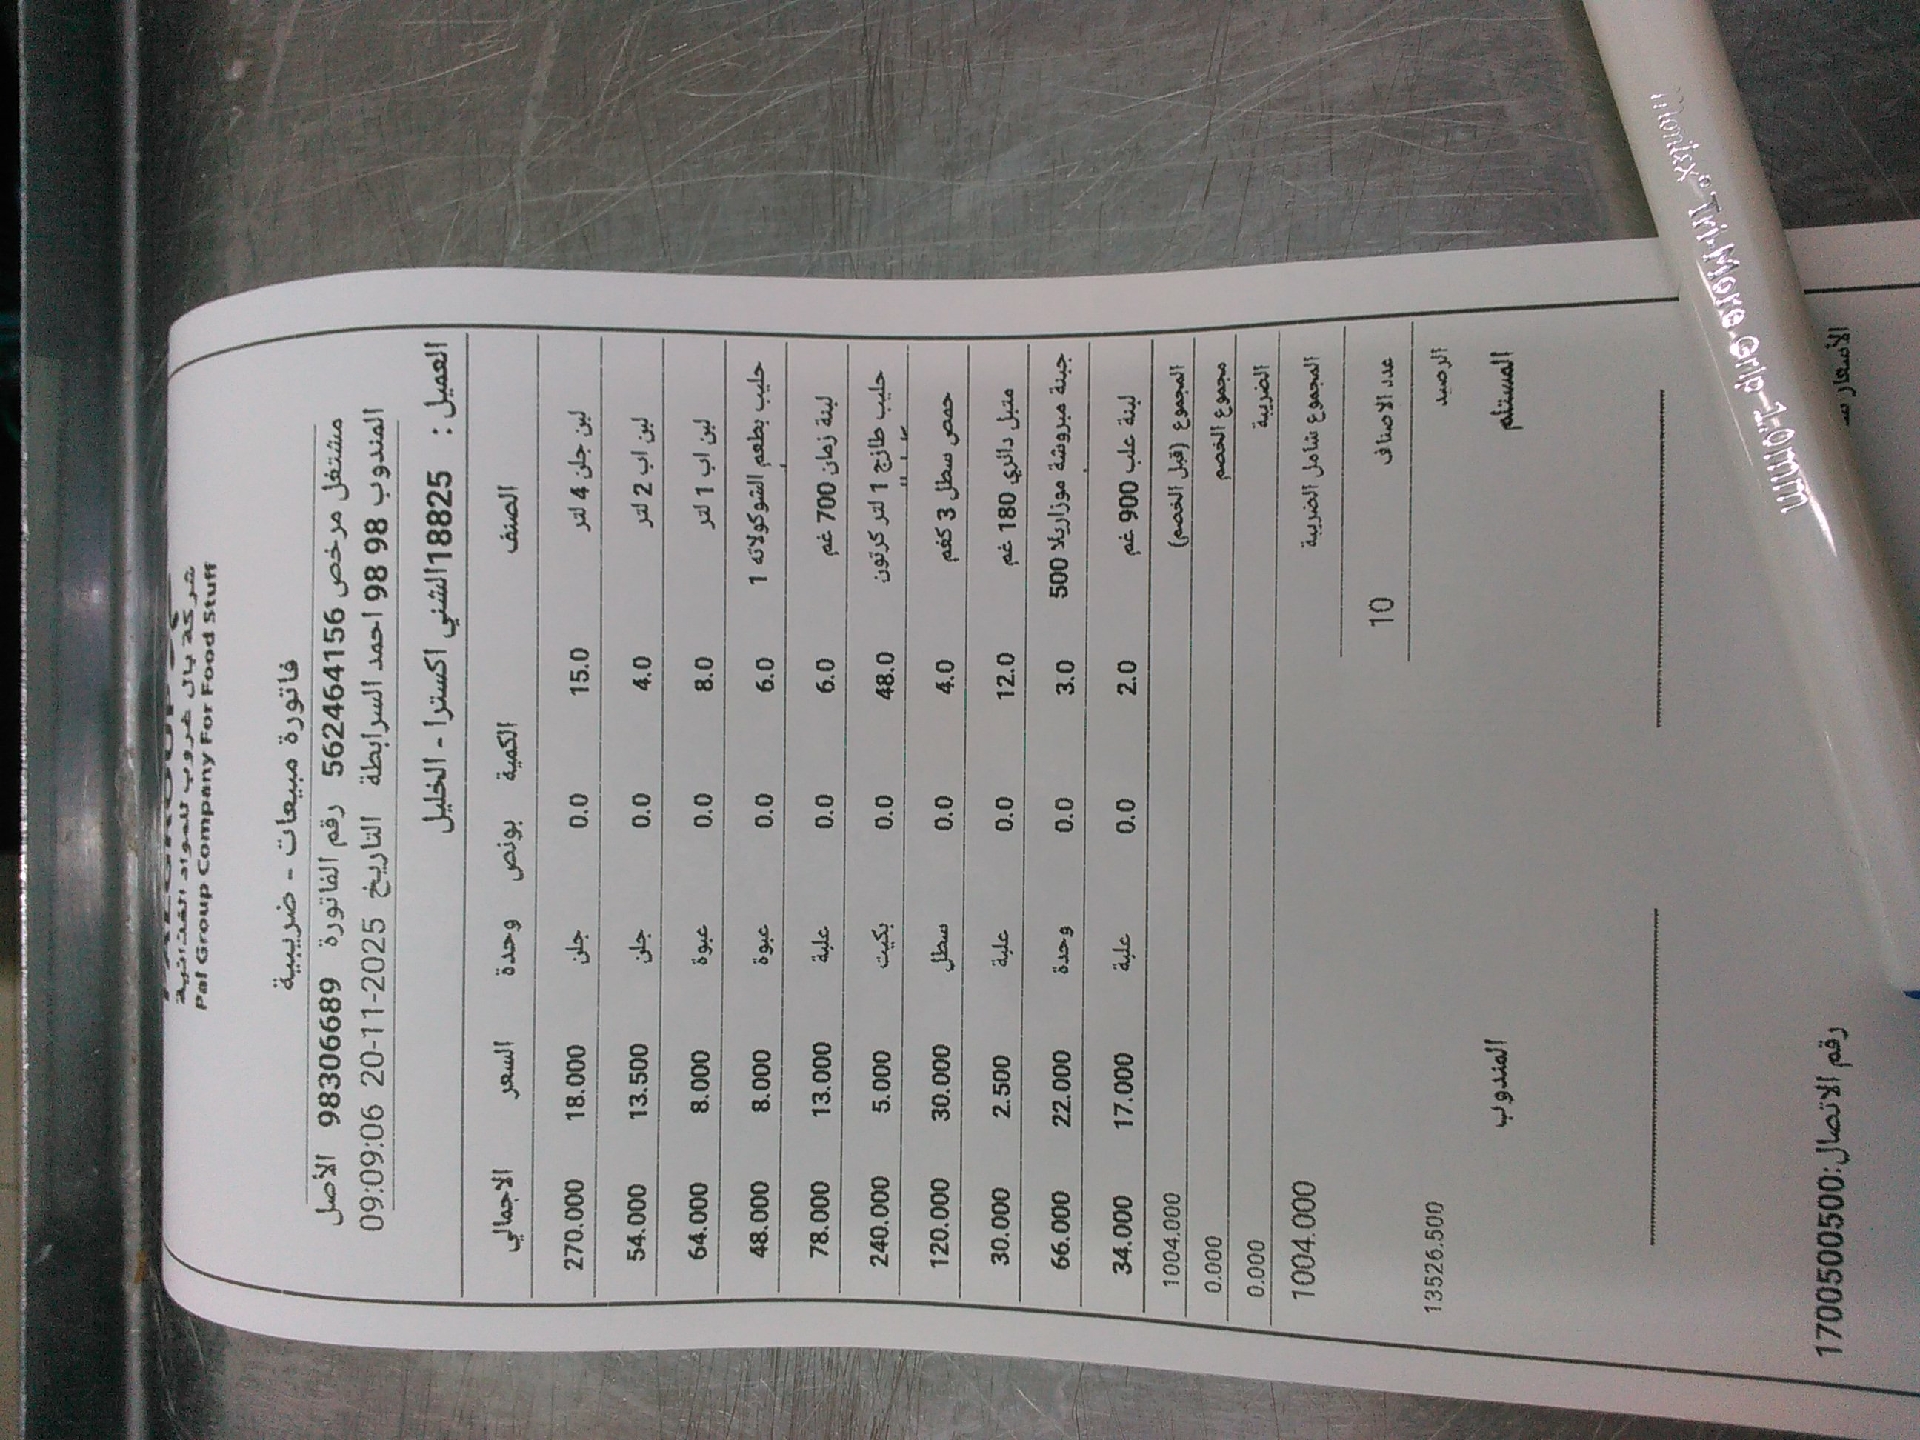 PALGROUP
شركة بال غروب للمواد الغذائية
Pal Group Company For Food Stuff
فاتورة مبيعات - ضريبية
مشتغل مرخص 562464156 رقم الفاتورة 98306689 الأصل
المندوب 98 98 احمد السرابطة التاريخ 2025-11-20 09:09:06
العميل : 18825الشني اكسترا - الخليل
الصنف الكمية بونص وحدة السعر الاجمالي
لبن جلن 4 لتر 15.0 0.0 جلن 18.000 270.000
لبن اب 2 لتر 4.0 0.0 جلن 13.500 54.000
لبن اب 1 لتر 8.0 0.0 عبوة 8.000 64.000
حليب بطعم الشوكولاته 1 6.0 0.0 عبوة 8.000 48.000
لبنة زمان 700 غم 6.0 0.0 علبة 13.000 78.000
حليب طازج 1 لتر كرتون 48.0 0.0 بكيت 5.000 240.000
حمص سطل 3 كغم 4.0 0.0 سطل 30.000 120.000
متبل دائري 180 غم 12.0 0.0 علبة 2.500 30.000
جبنة مبروشة موزاريلا 500 3.0 0.0 وحدة 22.000 66.000
لبنة علب 900 غم 2.0 0.0 علبة 17.000 34.000
المجموع (قبل الخصم) 1004.000
مجموع الخصم 0.000
الضريبة 0.000
المجموع شامل الضريبة 1004.000
عدد الاصناف 10
الرصيد 13526.500
المستلم المندوب
الأسعار
رقم الاتصال:1700500500
Monjix TM More Grip 1.0mm